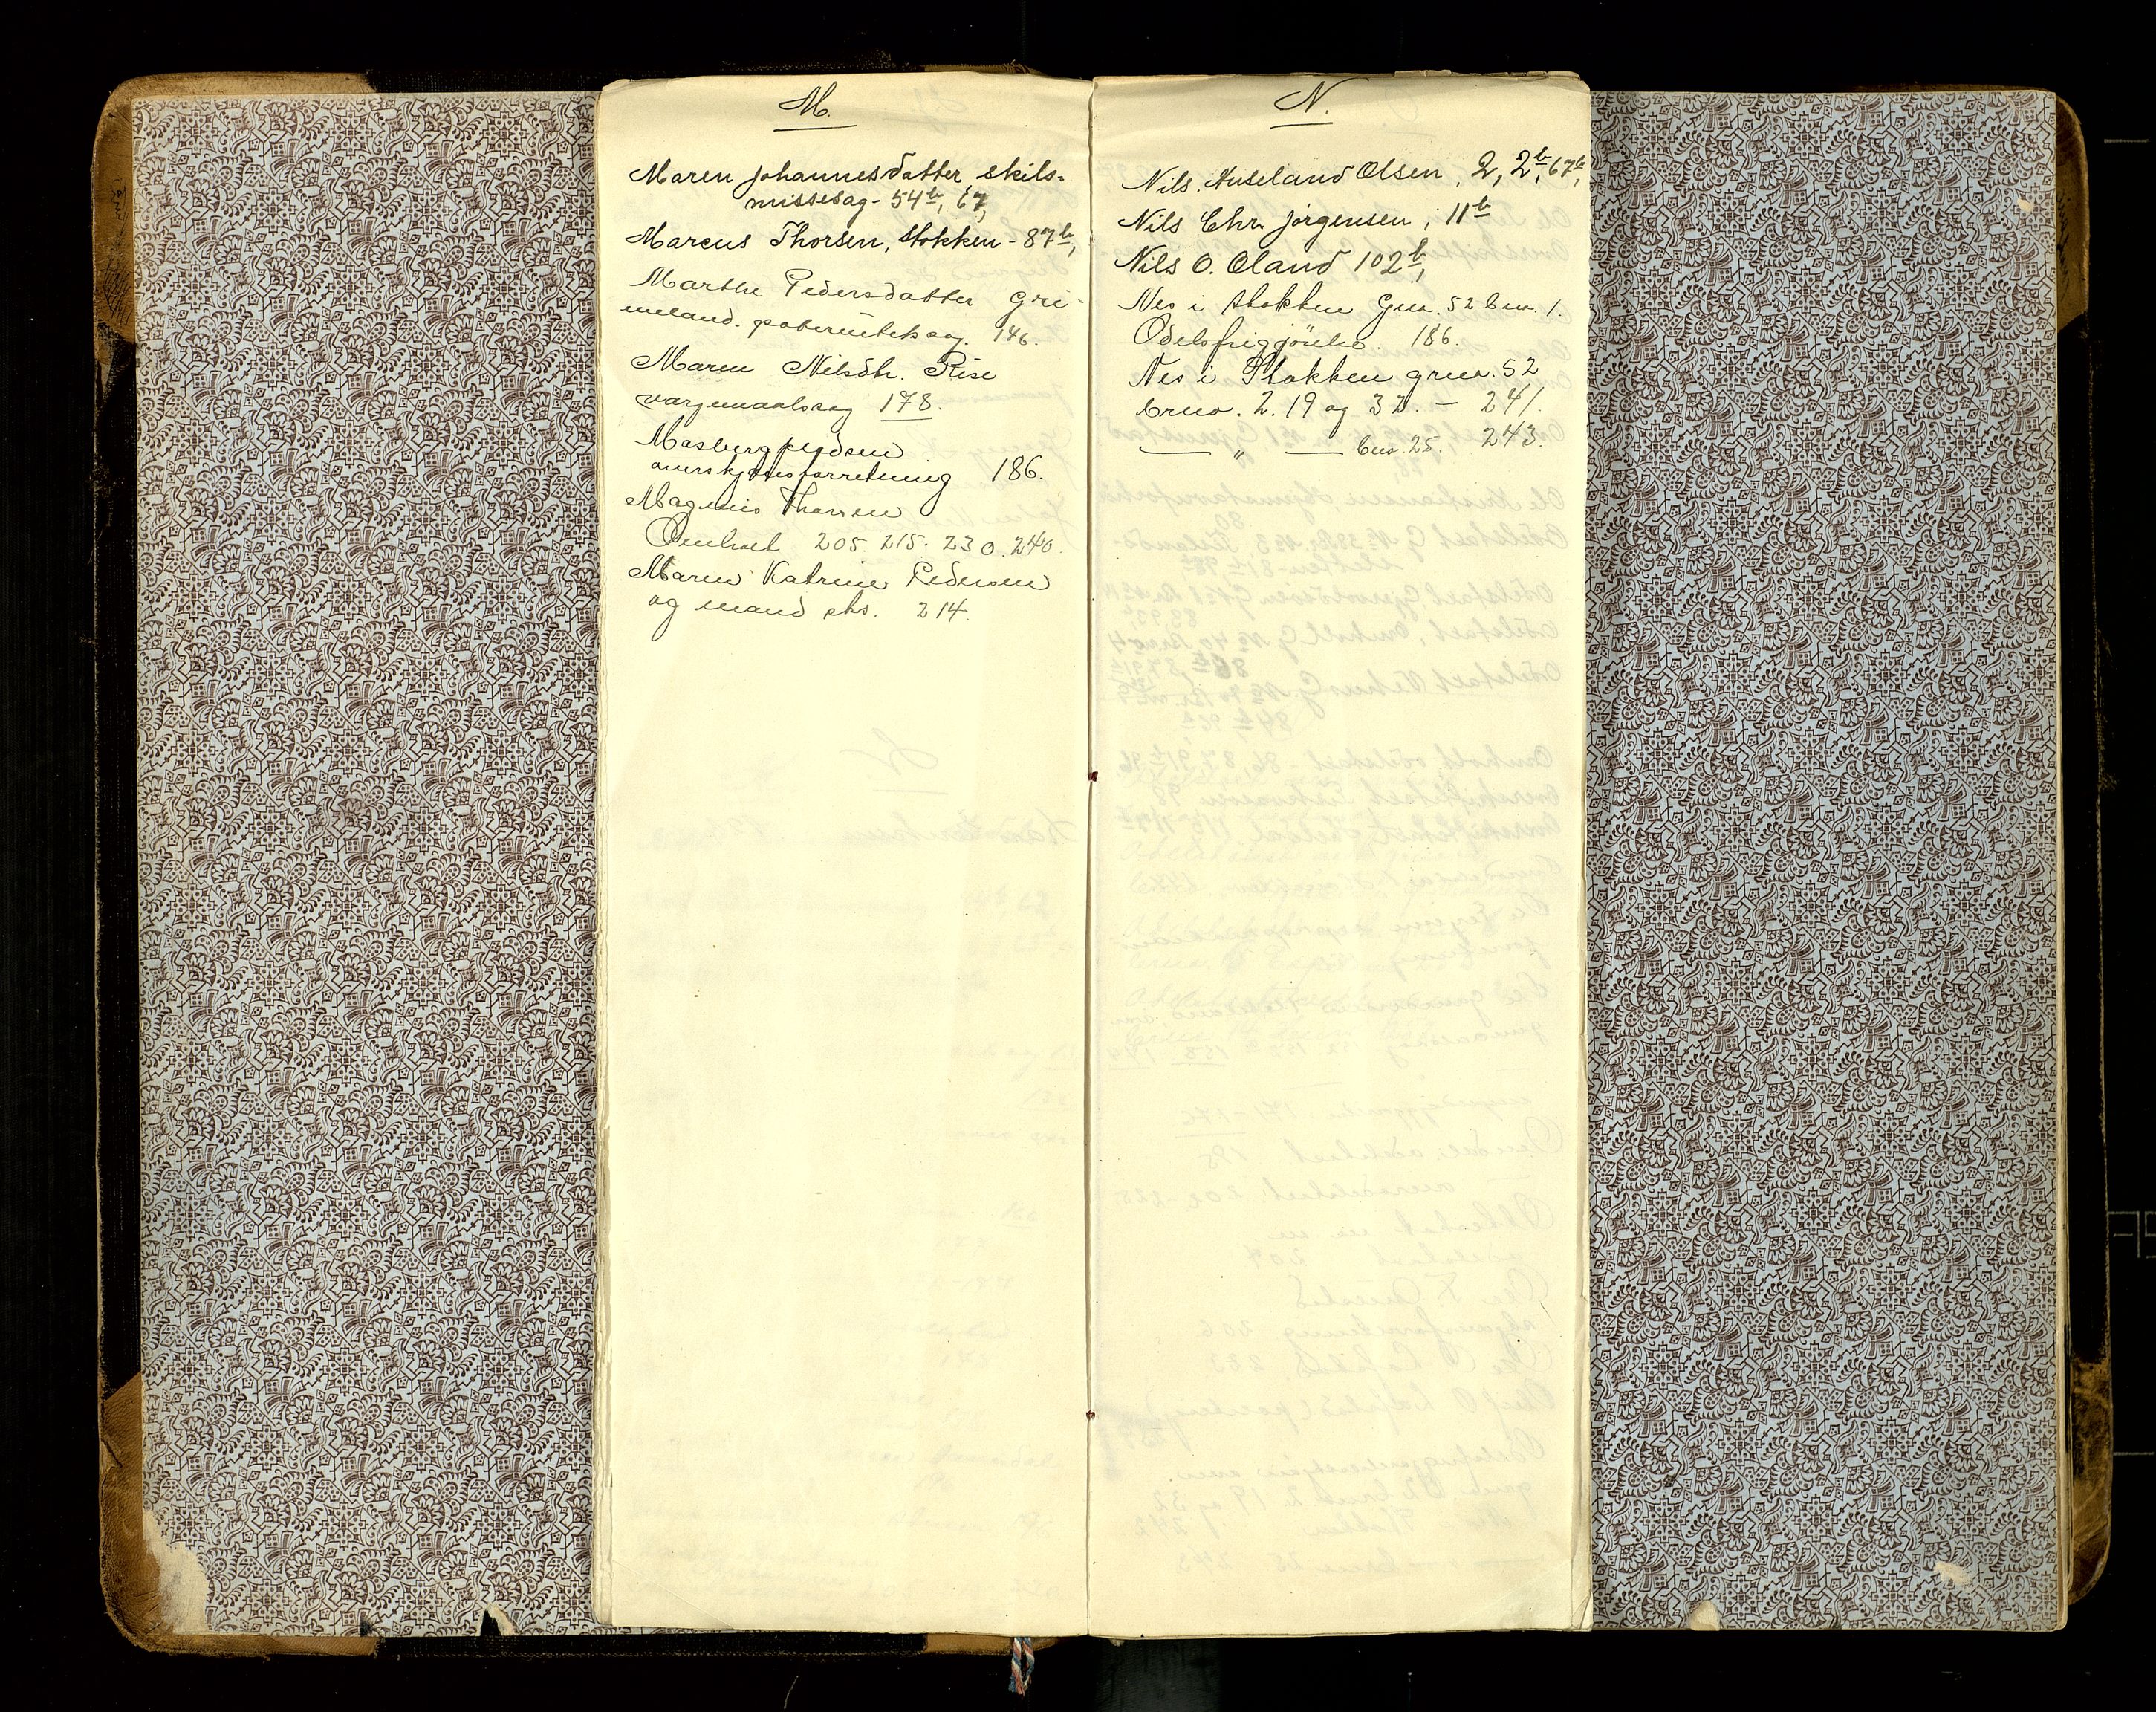 M.
Maren Johannesdatter skils-
missesag - 54b, 67,
Marcus Thorsen, Stokken - 87b,
Marthe Pedersdatter Gri-
meland. paternitetsag. 146.
Maren Nilsdtr. Rise
værgemaalssag 178.
Mosberg
overskjønsforretning 186.
Magnus Thorsen
Omholt 205. 215. 230. 240.
Maren Katrine Pedersen
og mand sks. 214.
N.
Nils Auseland Olsen, 2, 2b, 67b,
Nils Chr. Jørgensen, 11b
Nils O. Oland 102b,
Nes i Stokken Gno. 52 bno. 1.
Odelsfrigjörelse. 186.
Nes i Stokken gno. 52
bno. 2. 19 og 32. - 241.
— " — bno. 25. 243.